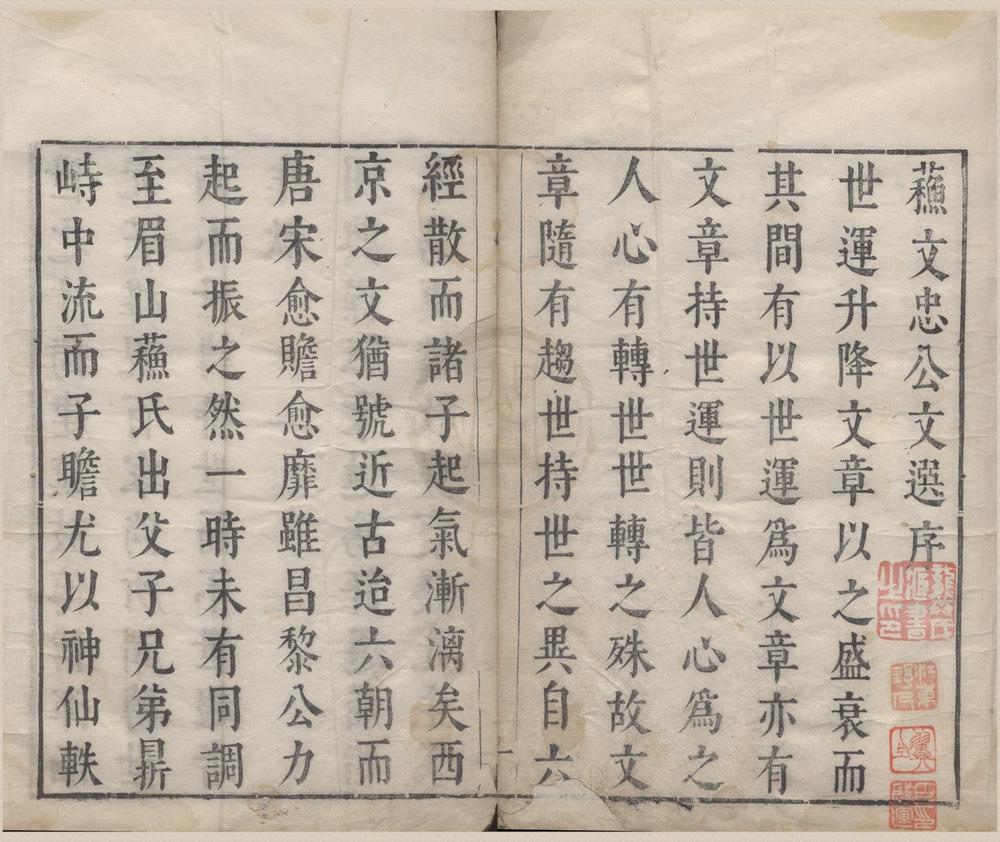 蘓文忠公文選序
世運升降文章以之盛衰而
其間有以世運爲文章亦有
文章持世運則皆人心爲之
人心有轉世世轉之殊故文
章隨有趨世持世之異自六
經散而諸子起氣漸漓矣西
京之文猶號近古迨六朝而
唐宋愈贍愈靡雖昌黎公力
起而振之然一時未有同調
至眉山蘓氏出父子兄弟鼎
峙中流而子瞻尤以神仙軼
一